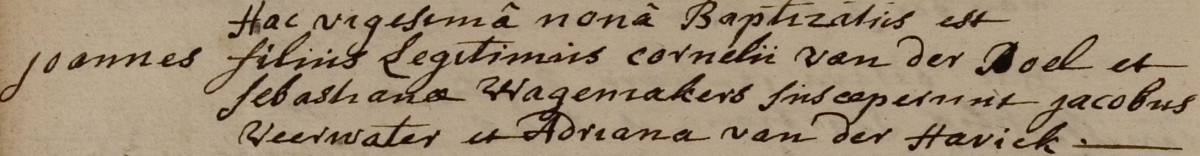 Hac vigesimâ nonâ Baptizatus est
joannes filius Legitimus cornelii van der Roel et
sebastianæ Wagemakers susceperunt jacobus
Veerwater et Adriana van der Havick.